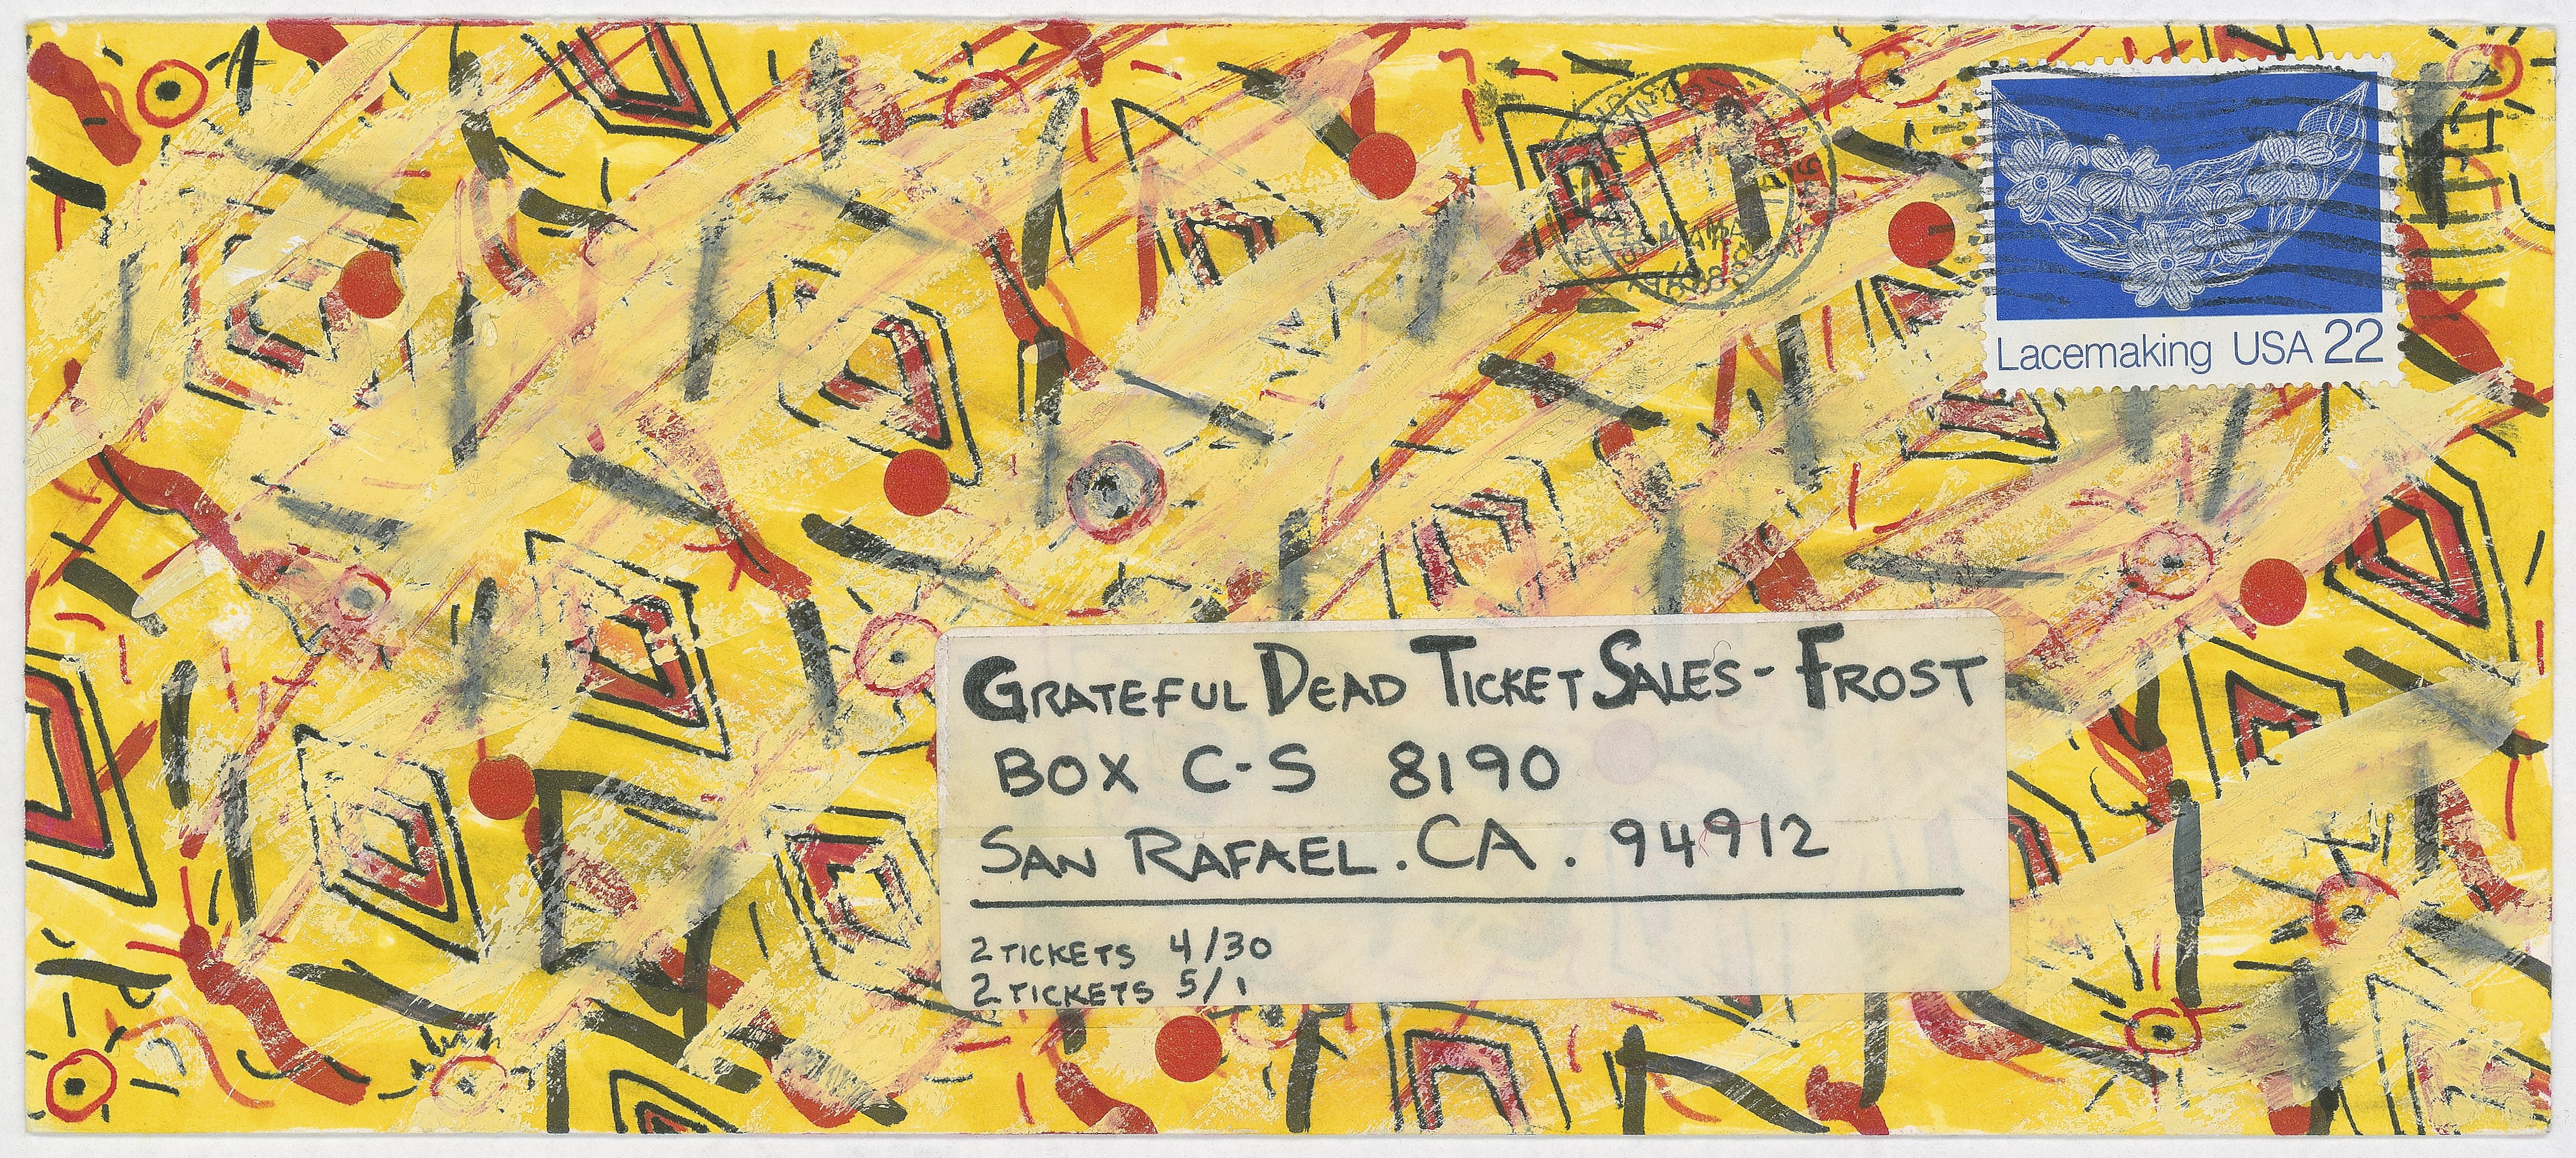 Lacemaking USA 22
GRATEFUL DEAD TICKET SALES - FROST
BOX C-S 8190
SAN RAFAEL . CA . 94912
2 TICKETS 4/30
2 TICKETS 5/1